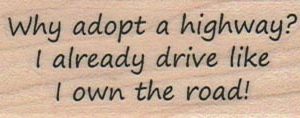 Why adopt a highway?
I already drive like
I own the road!